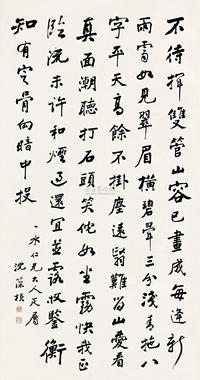 不待揮雙管山容已畫成每逢新
雨霽如見翠眉橫碧暈三分淺青拖八
字平天高餘不掛塵遠翳難留山愛看
真面潮聽打石頭笑他如坐霧快我正
臨流未許和煙過還宜並露收鑒衡
知有定骨向暗中投
一水仁兄大人正屬
沈葆楨